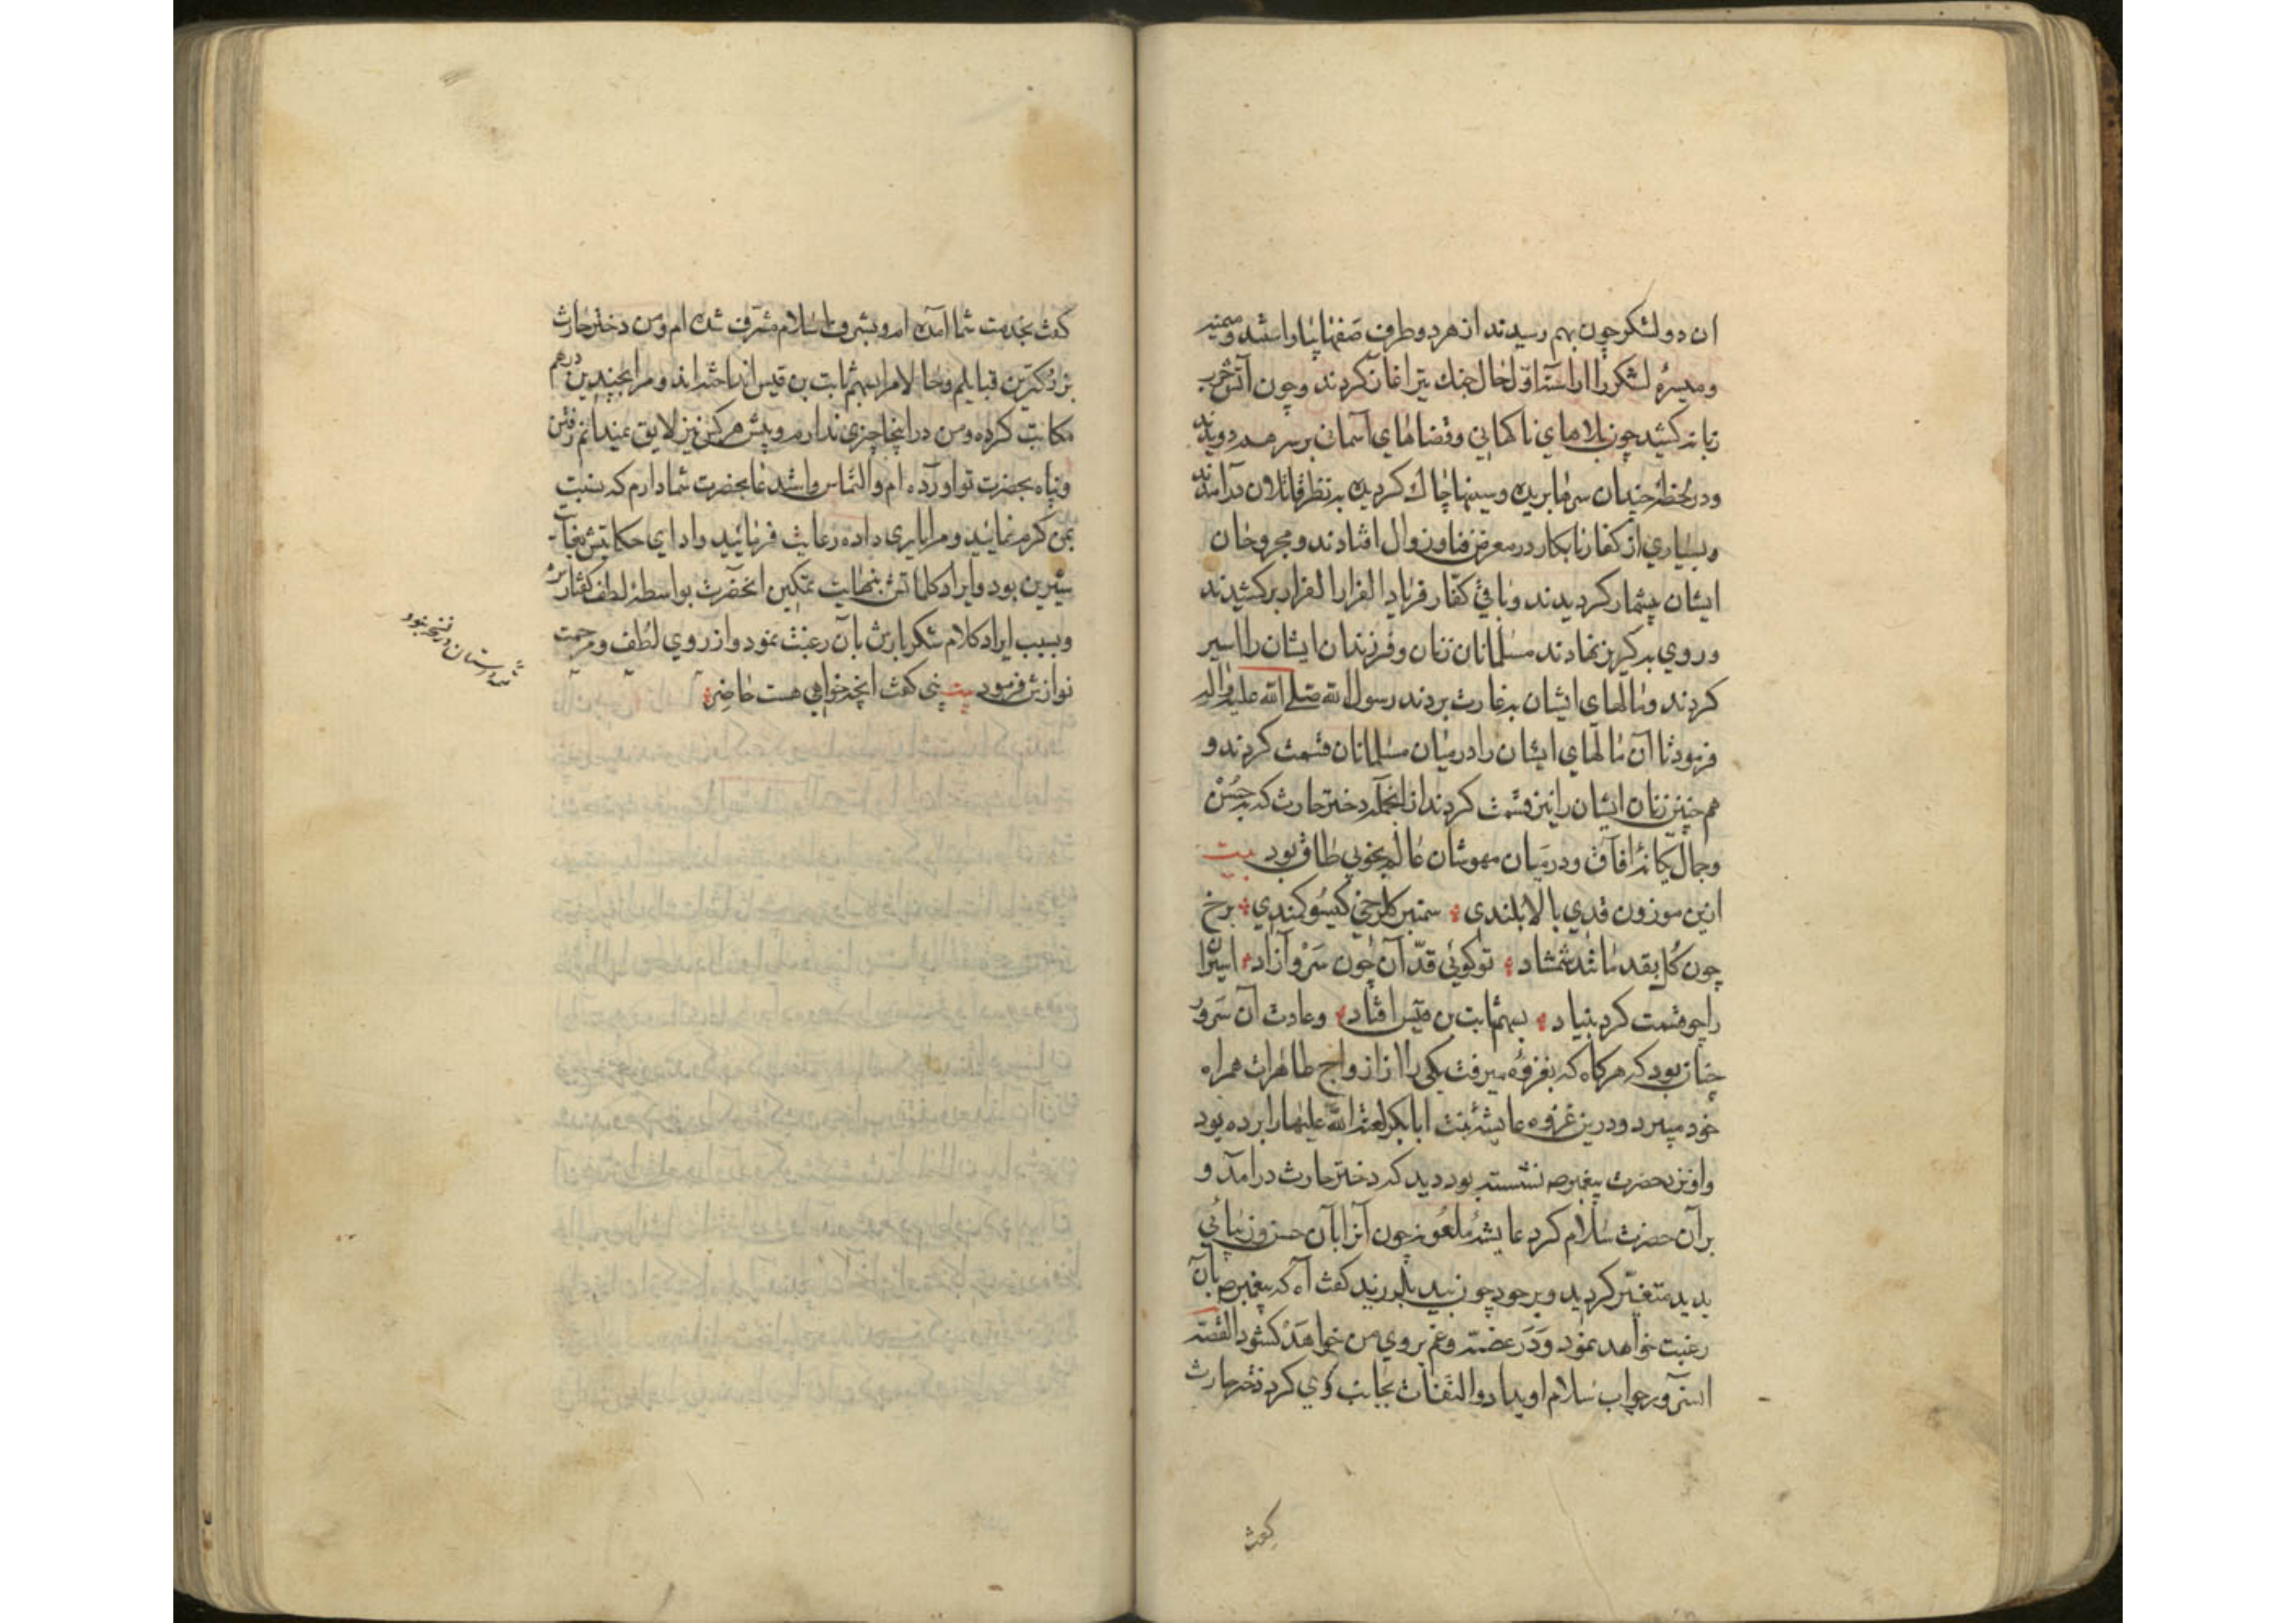 ان دو لشکر چون بهم رسیدند از هر دو طرف صفها بیاراستند و میمنه
و میسرهٔ لشکر را اراستند اول حال جنك تیر اغاز کردند و چون آتش حرب
زبانه کشید چون بلاهای ناکهانی و قضاهای آسمانی بر سر هم دویدند
و در لحظهٔ چندان سرها بریده و سینها چاك کردیده بنظر قاتلان درآمدند
و بسیاری از کفار نابکار در معرض فنا و زوال افتادند و مجروحان
ایشان بیشمار کردیدند و باقی کفار فریاد الفرار الفرار برکشیدند
و روی بکریز نهادند مسلمانان زنان و فرزندان ایشان را اسیر
کردند و مالهای ایشان بغارت بردند رسول الله صلی الله علیه و اله
فرمود تا آن مالهای ایشان را در میان مسلمانان قسمت کردند و
هم چنین زنان ایشان را نیز قسمت کردند از انجمله دختر حارث که بحسن
و جمال یکانهٔ افاق و در میان مهوشان عالم بخوبی طاق بود بیت
ازین موزون قدی بالا بلندی سمنبر کلرخی کیسو کمندی برخ
چون کل بقد مانند شمشاد تو کوئی قد آن چون سرو آزاد اسیران
را چو قسمت کرد بنیاد بسهم ثابت بن قیس افتاد و عادت آن سرور
چنان بود که هرکاه که بغزوه میرفت یکی را از ازواج طاهرات همراه
خود میبرد و درین غزوه عایشه بنت ابابکر لعنة الله علیها را برده بود
و او نزد حضرت پیغمبر ص نشسته بود دید که دختر حارث درامد و
بر آن حضرت سلام کرد عایشهٔ ملعونه چون آنرا بآن حسن و زیبائی
بدید متغیر کردید و بر خود چون بید بلرزید کفت آه که پیغمبر ص بآن
رغبت خواهد نمود و در غصه و غم بروی من خواهد کشود القصه
انسرور جواب سلام او بداد و التفات بجانب وی کرد دختر حارث
کفت
کفت بخدمت شما آمده ام و بشرف اسلام مشرف شده ام و من دختر حارث
بزرکترین قبایلم و حالا مرا بسهم ثابت بن قیس انداخته اند و مرا بچندین درهم
مکاتبت کرده و من در اینجا چیزی ندارم و پیش هر کس نیز لایق نمیدانم رفتن
و پناه بحضرت تو اورده ام و التماس و استدعا بحضرت شما دارم که نسبت
بمن کرم نمائید و مرا یاری داده رعایت فرمائید و ادای حکایتش بغایت
شیرین بود و ایراد کلماتش بنهایت تمکین انحضرت بواسطهٔ لطف کفتارش
و بسبب ایراد کلام شکربارش بآن رغبت نمود و از روی لطف و مرحمت
نوازش فرمود بیت نبی کفت انچه خواهی هست حاضر